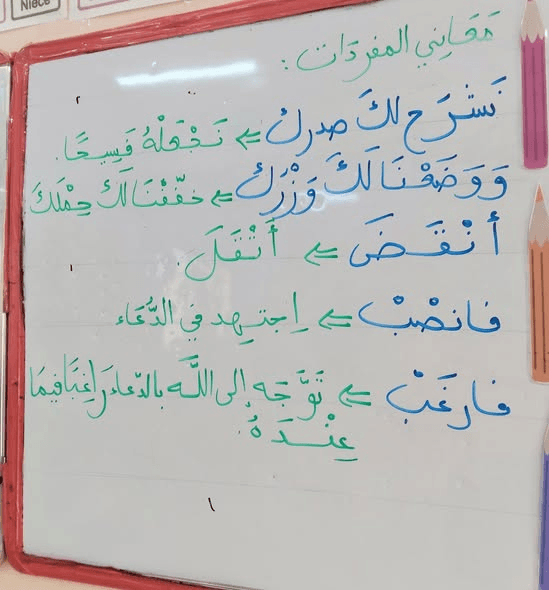 Niece
مَعَاني المفردَات :
نَشْرَح لكَ صدركْ ⇐ نَجْعَلْهُ فَسِيحًا.
وَوَضَعْنَا لَكَ وَزْرَكْ ⇐ خفّفْنَا لَكَ حِمْلَكَ
أَنْقَضَ ⇐ أَثْقَلَ.
فانصْبْ ⇐ اِجتهد في الدُّعَاء
فارغَبْ ⇐ تَوَّجَه إلى اللَّه بالدّعاء رَاغِبًا فيمَا
عِنْدَهُ